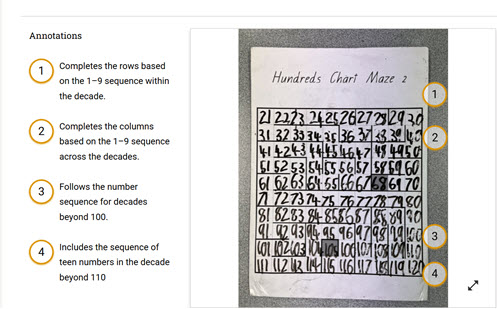 Annotations
1
Completes the rows based
on the 1–9 sequence within
the decade.
2
Completes the columns
based on the 1–9 sequence
across the decades.
3
Follows the number
sequence for decades
beyond 100.
4
Includes the sequence of
teen numbers in the decade
beyond 110
Hundreds Chart Maze 2
1
21 22 23 24 25 26 27 28 29 30
31 32 33 34 35 36 37 38 39 40
2
41 42 43 44 45 46 47 48 49 50
51 52 53 54 55 56 57 58 59 60
61 62 63 64 65 66 67 68 69 70
71 72 73 74 75 76 77 78 79 80
81 82 83 84 85 86 87 88 89 90
91 92 93 94 95 96 97 98 99 100
3
101 102 103 104 105 106 107 108 109 110
111 112 113 114 115 116 117 118 119 120
4